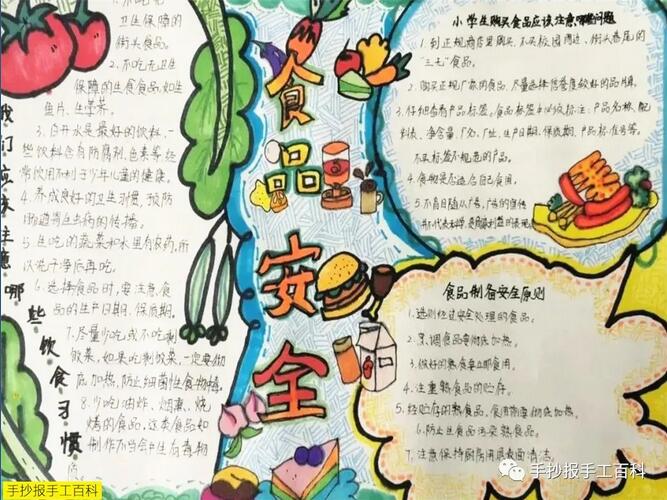 食品安全
我们应该注意哪些饮食习惯
2、不吃无卫生
保障的
街头食品。
2、不吃无卫
保障的生食食品,如生
鱼片、生
3、白开水是最好的饮料,一
些饮料含有防腐剂、色素等,经
常饮用不利于少年儿童的健康。
4、养成良好的卫生习惯,预防
肠道寄生虫病的传播。
5、生吃的蔬菜和水果有农药,所
以洗干净后再吃。
6、选择食品时,要注意食
品的生产日期、保质期。
7、尽量少吃或不吃剩
饭菜,如果吃剩饭菜,一定要彻
底加热,防止细菌性食物
8、少吃油炸、烟熏、烧
烤的食品,这类食品如
制作不当会产生有毒物
小学生购买食品应该注意哪些问题
1、到正规商店里购买,不买校园周边、街头巷尾的
“三无”食品。
2、购买正规厂家的食品,尽量选择信誉度较好的品牌。
3、仔细查看产品标签。食品标签中必须标注:产品名称、配
料表、净含量、厂名、厂址、生产日期、保质期、产品标准号等。
不买标签不规范的产品。
4、食物是否适合自己食用。
5、不盲目随从广告,广告的宣传
并不代表科学,是商家利益的表现。
食品制备安全原则
1、选购经过安全处理的食品。
2、烹调食品要彻底加热。
3、做好的熟食要立即食用。
4、注重熟食品的贮存。
5、经贮存的熟食品,食用前要彻底加热。
6、防止生食品污染熟食品。
7、注意保持厨房用具表面清洁。
手抄报手工百科
手抄报手工百科